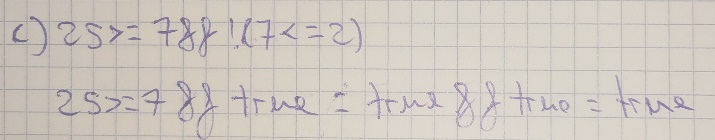 c) 25>=7&&!(7<=2)
25>=7 && true = true && true = true